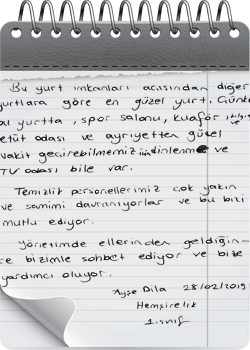 Bu yurt imkanları acısından diğer
yurtlara göre en güzel yurt. Çünkü
bu yurtta, spor salonu, kuaför
etüt odası ve ayriyetten güzel
vakit gecirebilmemiz için dinlenme ve
TV odası bile var.
Temizlik personellerimiz çok yakın
ve samimi davranıyorlar ve bu bizi
mutlu ediyor.
Yönetimde ellerinden geldiğin-
ce bizimle sohbet ediyor ve bize
yardımcı oluyor.
Ayşe Dila 28/02/2019
Hemşirelik
1.sınıf